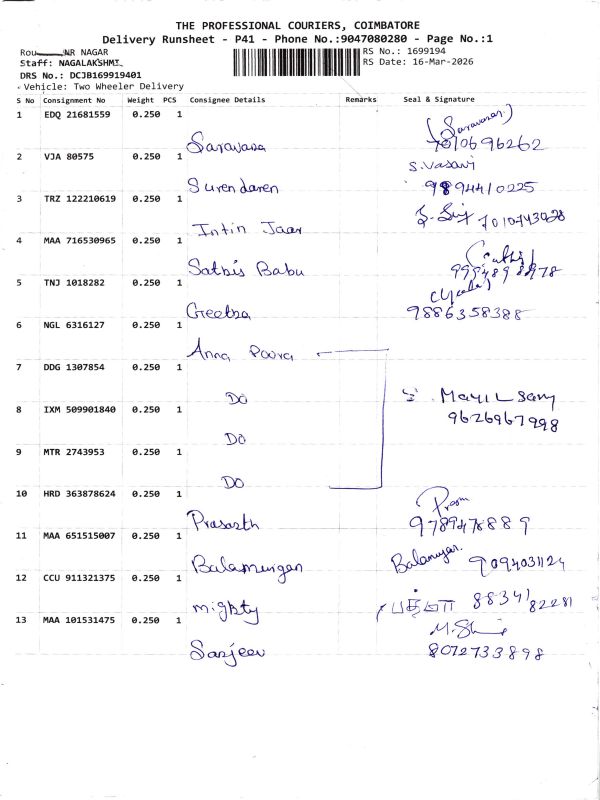 THE PROFESSIONAL COURIERS, COIMBATORE
Delivery Runsheet - P41 - Phone No.:9047080280 - Page No.:1
NR NAGAR
RS No.: 1699194
Staff: NAGALAKSHMI
RS Date: 16-Mar-2026
DRS No.: DCJB169919401
Vehicle: Two Wheeler Delivery
S No Consignment No Weight PCS Consignee Details Remarks Seal & Signature
1 EDQ 21681559 0.250 1 Saravana (Saravanan)
7010696262
2 VJA 80575 0.250 1 Surendaren S.Vasavi
9894410225
3 TRZ 122210619 0.250 1 Intin Jaar
4 MAA 716530965 0.250 1 Sathis Babu
5 TNJ 1018282 0.250 1 Geetha (Geetha)
9886358388
6 NGL 6316127 0.250 1 Anna Poora
7 DDG 1307854 0.250 1 DO Mayil Samy
9626967998
8 IXM 509901840 0.250 1 DO
9 MTR 2743953 0.250 1 DO
10 HRD 363878624 0.250 1 Prasanth
9789478889
11 MAA 651515007 0.250 1 Balamurugan Balamurugan 9094031124
12 CCU 911321375 0.250 1 mighty 88341 82281
13 MAA 101531475 0.250 1 Sanjeev
8072733898